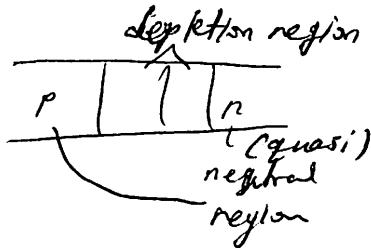 depletion region
p n
(quasi)
neutral
region